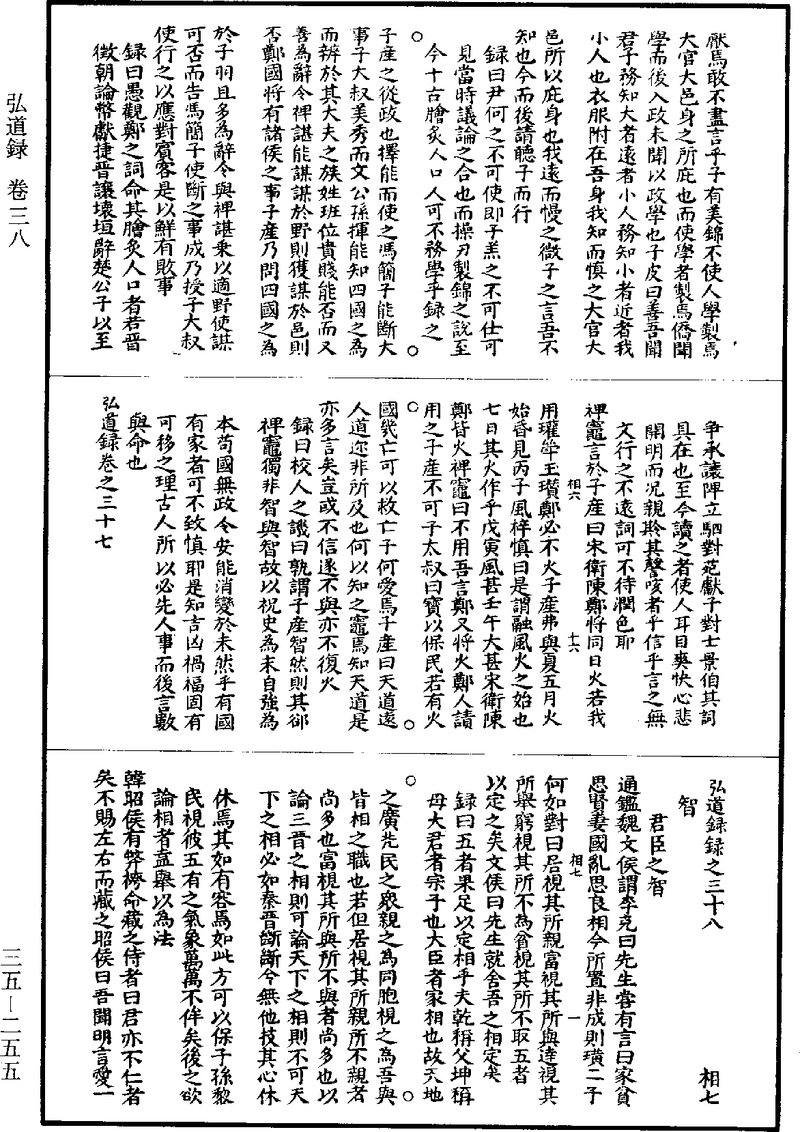 弘道录 卷三八
厭焉敢不盡言乎子有美錦不使人學製焉
大官大邑身之所庇也而使學者製焉僑聞
學而後入政未聞以政學也子皮曰善吾聞
君子務知大者遠者小人務知小者近者我
小人也衣服附在吾身我知而慎之大官大
邑所以庇身也我遠而慢之微子之言吾不
知也今而後請聽子而行
錄曰尹何之不可使即子羔之不可仕可
見當時議論之合也而操刃製錦之說至
今十古膾炙人口人可不務學乎錄之
○子產之從政也擇能而使之馮簡子能斷大
事子大叔美秀而文公孫揮能知四國之為
而辨於其大夫之族姓班位貴賤能否而又
善為辭令裨諶能謀謀於野則獲謀於邑則
否鄭國將有諸侯之事子產乃問四國之為
於子羽且多為辭令與裨諶乘以適野使謀
可否而告馮簡子使斷之事成乃授子大叔
使行之以應對賓客是以鮮有敗事
錄曰愚觀鄭之詞命其膾炙人口者若晉
徵朝論幣獻捷晉讓壞垣辭楚公子以至
爭承讓陴立駟對范獻子對士景伯其詞
具在也至今讀之者使人耳目爽快心悲
開明而況親聆其謦咳者乎信乎言之無
文行之不遠詞可不待潤色耶
裨竈言於子產曰宋衛陳鄭將同日火若我
相六
十六
用瓘斝玉瓚鄭必不火子產弗與夏五月火
始昏見丙子風梓慎曰是謂融風火之始也
七日其火作乎戊寅風甚壬午大甚宋衛陳
鄭皆火裨竈曰不用吾言鄭又將火鄭人請
用之子產不可子太叔曰寶以保民若有火
○國幾亡可以救亡子何愛焉子產曰天道遠
人道邇非所及也何以知之竈焉知天道是
亦多言矣豈或不信遂不與亦不復火
錄曰校人之譏曰孰謂子產智然則其卻
裨竈獨非智與智故以祝史為末自強為
本苟國無政令安能消變於未然乎有國
有家者可不致慎耶是知吉凶禍福固有
可移之理古人所以必先人事而後言數
與命也
弘道錄卷之三十七
弘道錄錄之三十八
相七
智
君臣之智
通鑑魏文侯謂李克曰先生嘗有言曰家貧
思賢妻國亂思良相今所置非成則璜二子
相七
一
何如對曰居視其所親富視其所與達視其
所舉窮視其所不為貧視其所不取五者
以定之矣文侯曰先生就舍吾之相定矣
錄曰五者果足以定相乎夫乾稱父坤稱
母大君者宗子也大臣者家相也故天地
○之廣先民之眾親之為同胞視之為吾與
皆相之職也若但居視其所親所不親者
尚多也富視其所與所不與者尚多也以
論三晉之相則可論天下之相則不可天
下之相必如秦晉斷斷兮無他技其心休
休焉其如有容焉如此方可以保子孫黎
民視彼五有之氣象萬萬不侔矣後之欲
論相者盍舉以為法
韓昭侯有弊袴命藏之侍者曰君亦不仁者
矣不賜左右而藏之昭侯曰吾聞明言愛一
三五—二五五